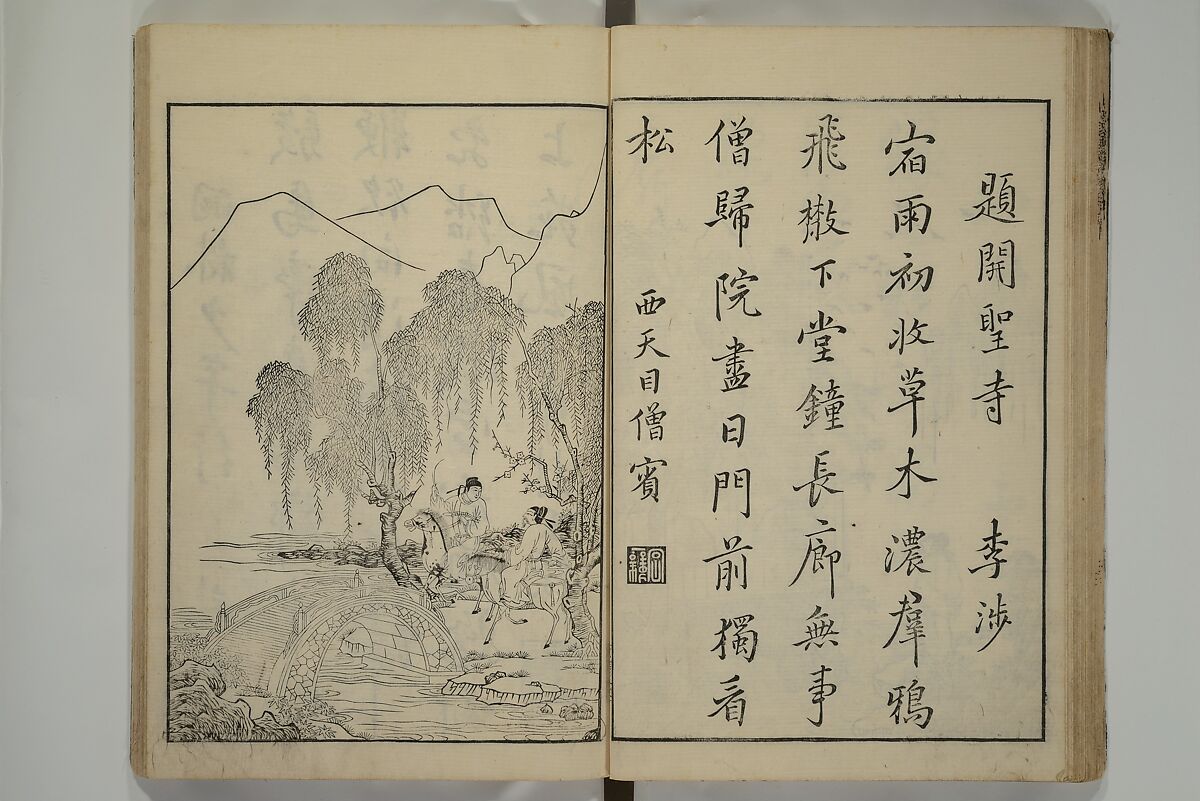 題開聖寺 李涉
宿雨初收草木濃羣鴉
飛散下堂鐘長廊無事
僧歸院盡日門前獨看
松 西天目僧賓